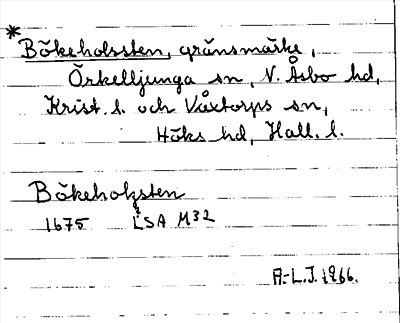 *
Bökeholssten, gränsmärke,
Örkelljunga sn, V. Åsbo hd,
Krist. l. och Våxtorps sn,
Höks hd, Hall. l.
Bökeholzsten
1675 LSA M32
A.-L.J. 1966.